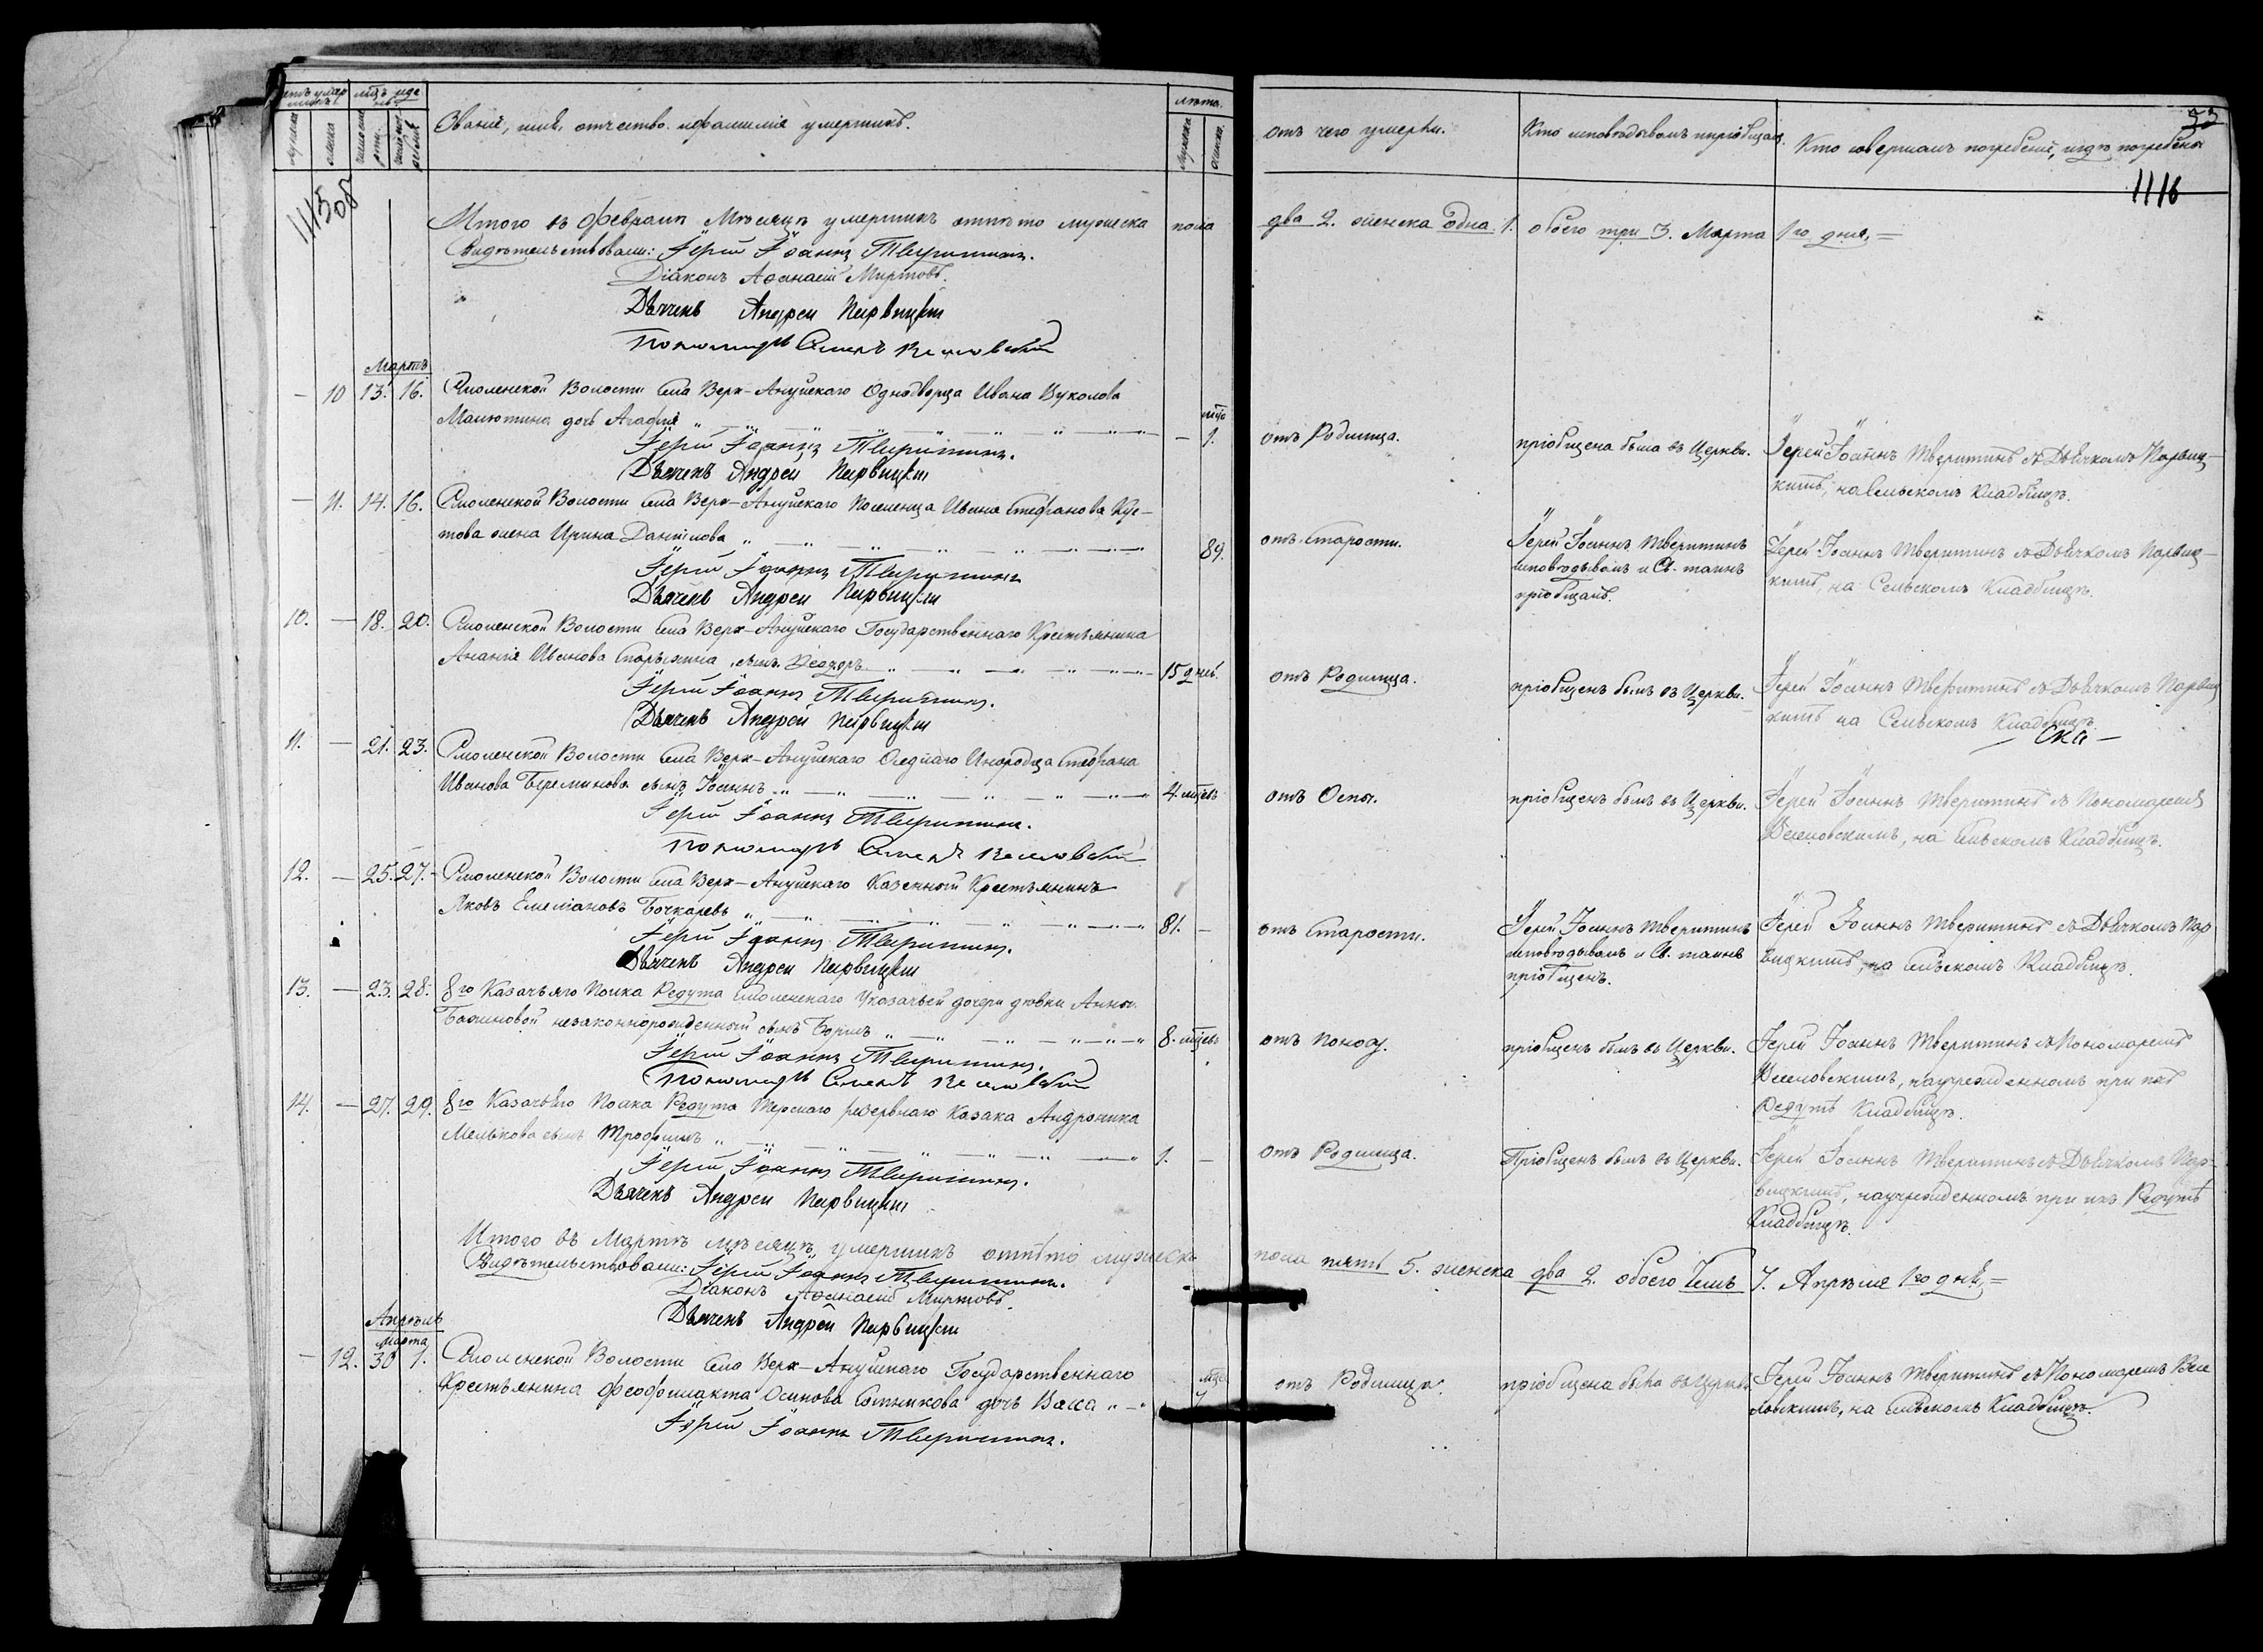 Счетъ умершихъ. мцъ и день.
мужеска
женска
Званіе, имя, отчество и фамилія умершихъ.
лѣта.
мужеска
женска.
отъ чего умерли.
Кто исповѣдывалъ и пріобщалъ.
Кто совершалъ погребеніе, и гдѣ погребены
33
1116
1115 об
Итого въ Февралѣ Мѣсяцѣ умершихъ отпѣто мужеска пола два 2. женска одна. 1. обоего три 3. Марта 1го дня. =
Свидѣтельствовали: Іерей Іоаннъ Тверитинъ.
Діаконъ Афанасій Миртовъ.
Дьячекъ Андрей Парвицкій
Пономарь Семенъ Веселовскій
Мартъ
— 10 13. 16. Смоленской Волости села Верх-Ануйскаго Однодворца Ивана Вуколова
Малютина дочь Агафія — 1. отъ Родимца. пріобщена была въ Церкви. Іерей Іоаннъ Тверитинъ съ Дьячкомъ Парвиц-
Іерей Іоаннъ Тверитинъ.
кимъ, на Сельскомъ Кладбищѣ.
Дьячекъ Андрей Парвицкій
— 11. 14. 16. Смоленской Волости села Верх-Ануйскаго Поселенца Ивана Стефанова Кус-
това жена Ирина Данилова 89. отъ Старости. Іерей Іоаннъ Тверитинъ Іерей Іоаннъ Тверитинъ съ Дьячкомъ Парвиц-
исповѣдывалъ и Св. таинъ кимъ, на Сельскомъ Кладбищѣ.
пріобщалъ.
Іерей Іоаннъ Тверитинъ
Дьячекъ Андрей Парвицкій
10. — 18. 20. Смоленской Волости села Верх-Ануйскаго Государственнаго Крестьянина
Ананія Иванова сынъ 15 дней. отъ Родимца. пріобщенъ былъ въ Церкви. Іерей Іоаннъ Тверитинъ съ Дьячкомъ Парвиц
Іерей Іоаннъ Тверитинъ.
кимъ на Сельскомъ Кладбищѣ.
Дьячекъ Андрей Парвицкій
11. — 21. 23. Смоленской Волости села Верх-Ануйскаго Осѣдлаго Инородца Стефана
Иванова сынъ Іоаннъ 4. мцевъ отъ Оспы. пріобщенъ былъ въ Церкви. Іерей Іоаннъ Тверитинъ съ Пономаремъ
Іерей Іоаннъ Тверитинъ.
Веселовскимъ, на Сельскомъ Кладбищѣ.
Пономарь Семенъ Веселовскій
12. — 25. 27. Смоленской Волости села Верх-Ануйскаго Казенный Крестьянинъ
Яковъ Емеліановъ Бочкаревъ 81. — отъ Старости. Іерей Іоаннъ Тверитинъ Іерей Іоаннъ Тверитинъ съ Дьячкомъ Пар
исповѣдывалъ и Св. таинъ вицкимъ, на Сельскомъ Кладбищѣ.
пріобщенъ.
Іерей Іоаннъ Тверитинъ.
Дьячекъ Андрей Парвицкій
13. — 23. 28. 8го Казачьяго Полка Редута Смоленскаго Казачьей дочери дѣвки Анны
Бажиновой незаконнорожденный сынъ Борисъ 8. мцевъ отъ Поносу. пріобщенъ былъ въ Церкви. Іерей Іоаннъ Тверитинъ съ Пономаремъ
Іерей Іоаннъ Тверитинъ.
Веселовскимъ, на учрежденномъ при ихъ
Редутѣ Кладбищѣ.
Пономарь Семенъ Веселовскій
14. — 27. 29. 8го Казачьяго Полка Редута Терскаго резервнаго Казака Андроника
Мелькова сынъ Трофимъ 1. — отъ Родимца. Пріобщенъ былъ въ Церкви. Іерей Іоаннъ Тверитинъ съ Дьячкомъ Пар-
Іерей Іоаннъ Тверитинъ.
вицкимъ, на учрежденномъ при ихъ Редутѣ
Кладбищѣ.
Дьячекъ Андрей Парвицкій
Итого въ Мартѣ мѣсяцѣ, умершихъ отпѣто мужеска пола пять 5. женска два 2. обоего семь 7. Апрѣля 1го дня. =
Свидѣтельствовали: Іерей Іоаннъ Тверитинъ.
Діаконъ Афанасій Миртовъ.
Дьячекъ Андрей Парвицкій
Апрѣль
Марта
— 12. 30 1. Смоленской Волости села Верх-Ануйскаго Государственнаго
Крестьянина Феофилакта Осипова Сотникова дочь Васса отъ Родимца. пріобщена была въ Церкви Іерей Іоаннъ Тверитинъ съ Пономаремъ Весе
ловскимъ, на Сельскомъ Кладбищѣ.
Іерей Іоаннъ Тверитинъ.